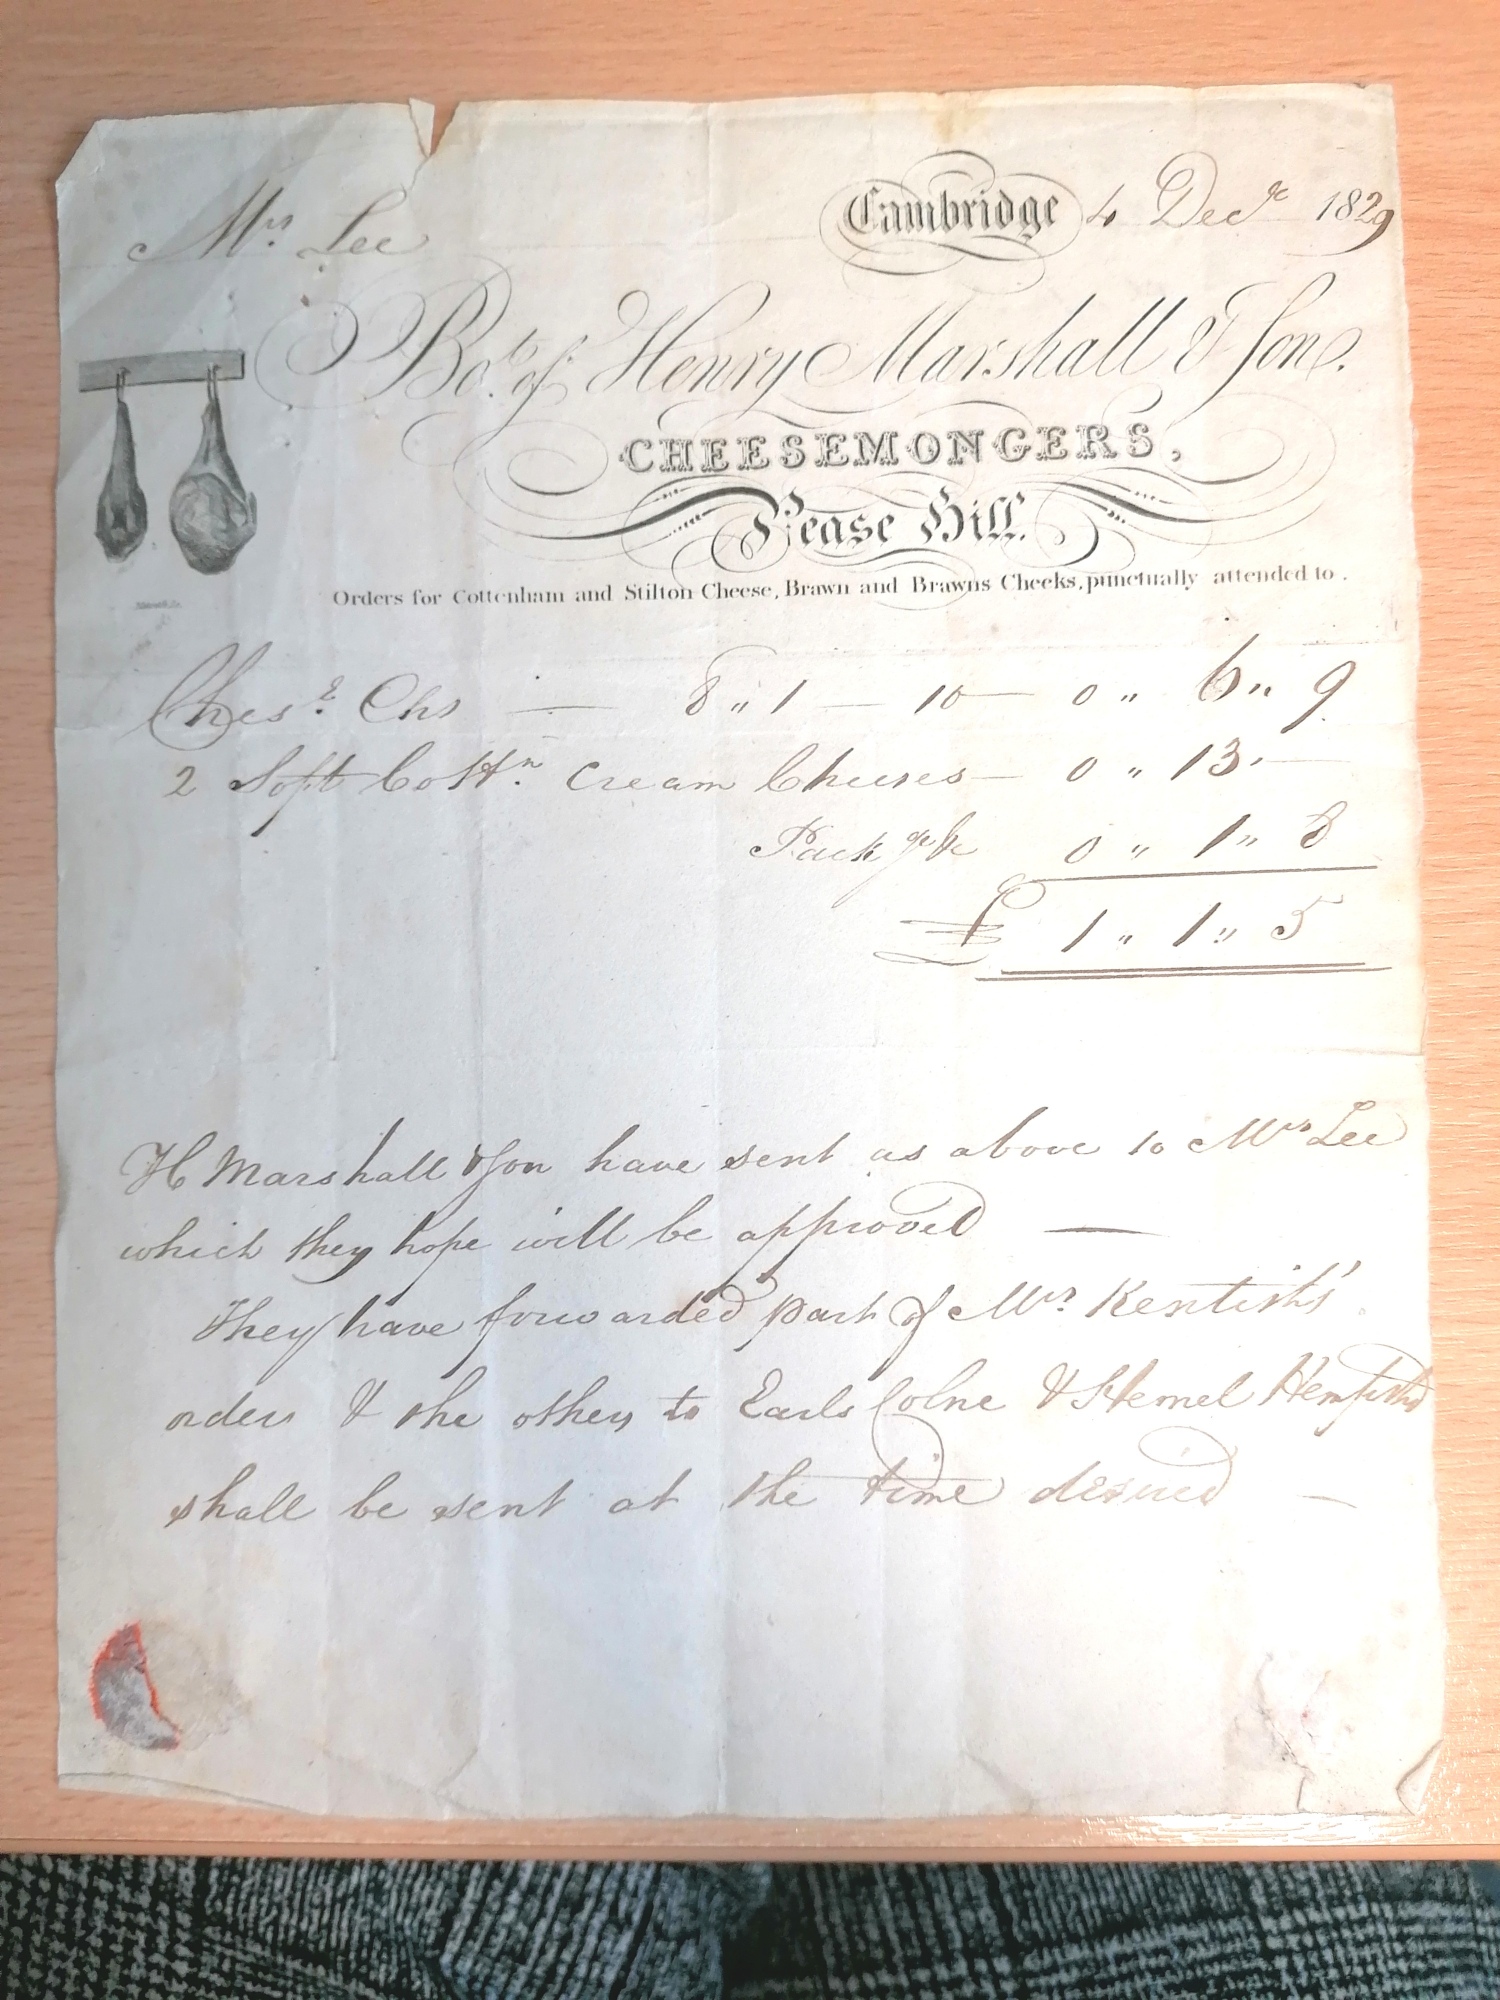 Mrs Lee
Cambridge 4 Decr 1829
Bot. of Henry Marshall & Son.
CHEESEMONGERS,
Pease Hill.
Orders for Cottenham and Stilton Cheese, Brawn and Brawns Cheeks, punctually attended to.
Chese. Chs — 8 " 1 — 10 — 0 " 6 " 9
2 Soft Cottn. Cream Cheeses — 0 " 13 " —
Packge &c 0 " 1 " 8
£ 1 " 1 " 5
H Marshall & Son have sent as above to Mrs Lee
which they hope will be approved —
They have forwarded part of Mrs Kentish's
order & the others to Earls Colne & Hemel Hempstd
shall be sent at the time desired —